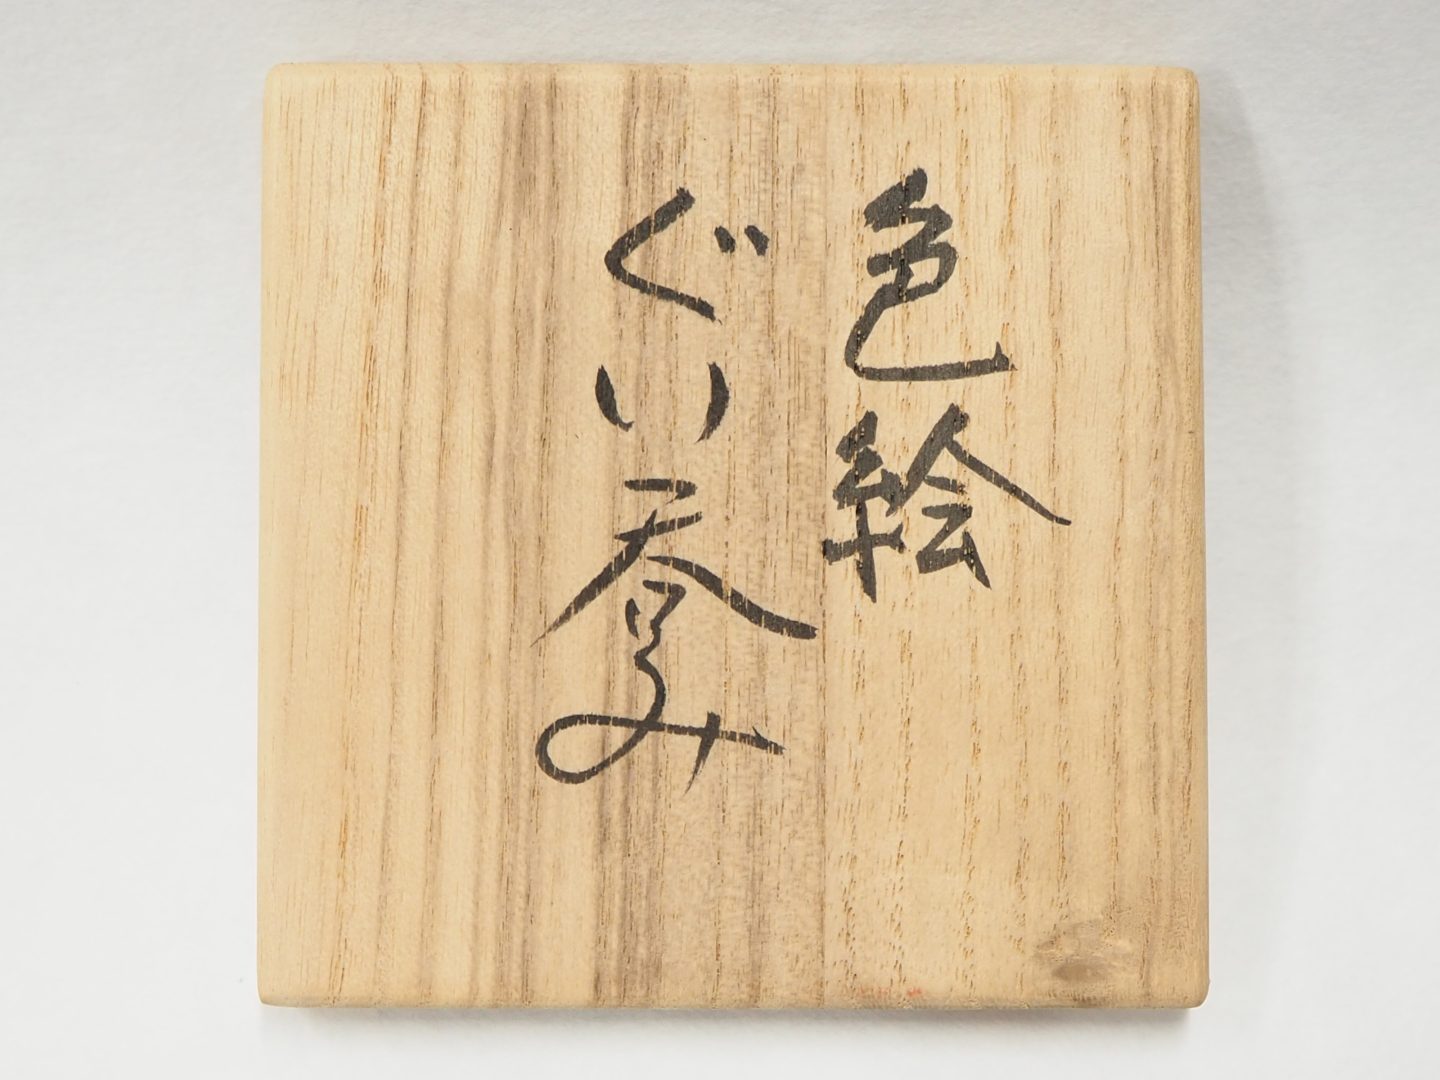 色絵
ぐい呑み